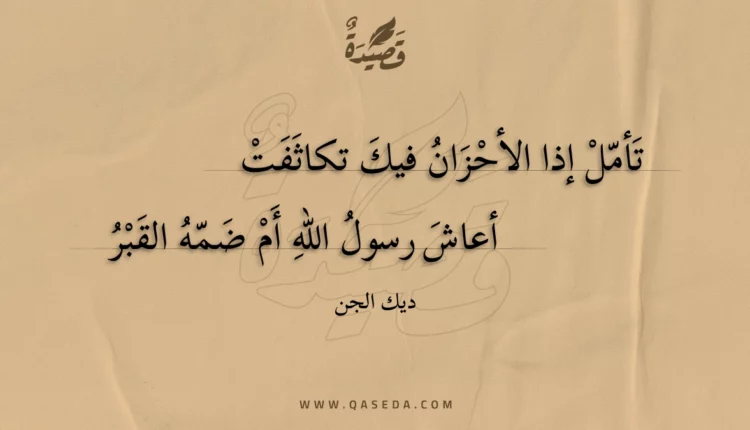 قَصِيْدَةٌ
تَأمّلْ إذا الأحْزَانُ فيكَ تكاثَفَتْ
أعاشَ رسولُ اللهِ أَمْ ضَمّهُ القَبْرُ
ديك الجن
WWW.QASEDA.COM